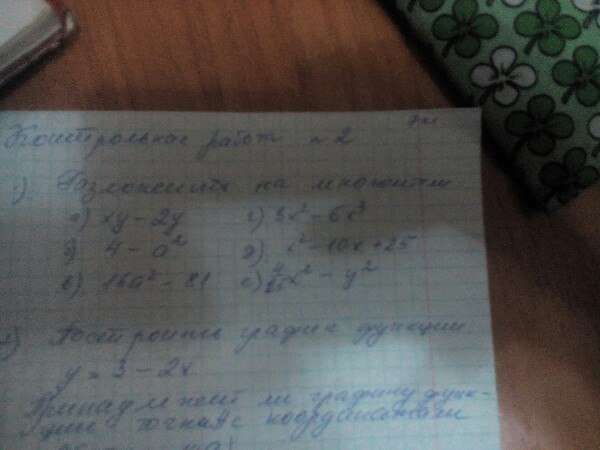 Контрольная работа № 2
1) Разложить на множители
а) xy - 2y г) 3x² - 6x³
б) 4 - a² д) x² - 10x + 25
в) 16a² - 81 е) x² - y²
2) Построить график функции
y = 3 - 2x
Принадлежит ли графику функ-
ции точка с координатами